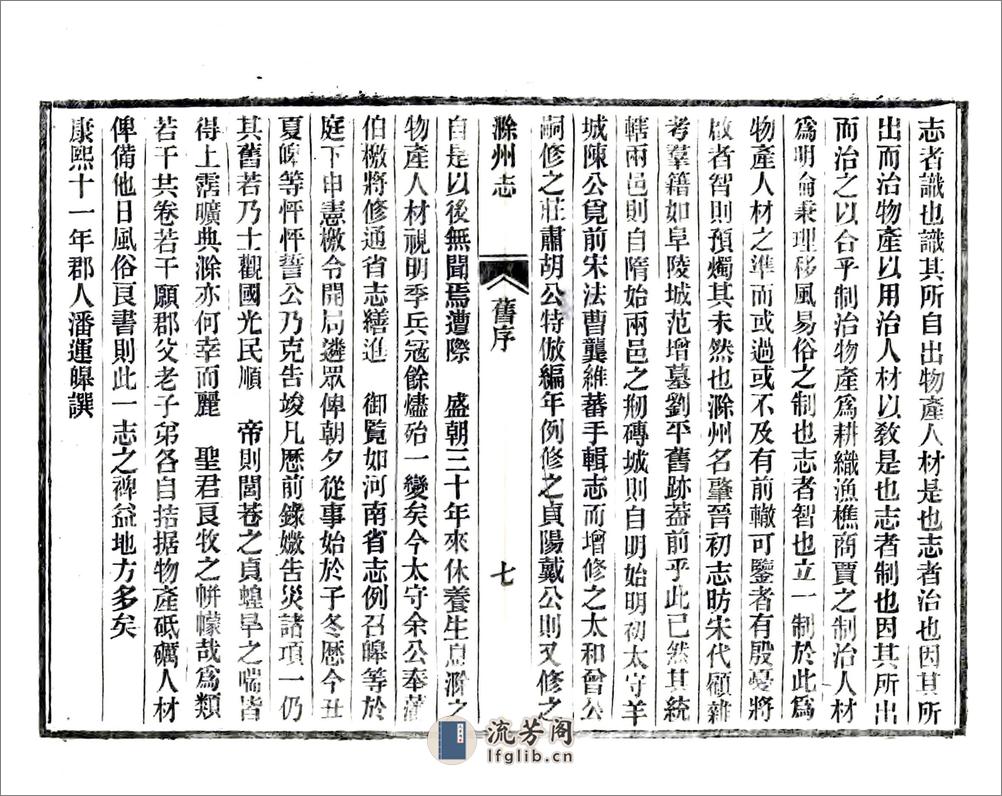 志者識也識其所自出物產人材是也志者治也因其所
出而治物產以用治人材以敎是也志者制也因其所出
而治之以合乎制治物產爲耕織漁樵商賈之制治人材
爲明倫秉理移風易俗之制也志者智也立一制於此爲
物產人材之準而或過或不及有前轍可鑒者有殷憂將
啟者智則預燭其未然也滁州名肇晉初志昉宋代顧雜
考羣籍如阜陵城范增墓劉平舊跡葢前乎此已然其統
轄兩邑則自隋始兩邑之剏磚城則自明始明初太守羊
城陳公覓前宋法曹龔維蕃手輯志而增修之太和曾公
嗣修之莊肅胡公特倣編年例修之貞陽戴公則又修之
滁州志
舊序
七
自是以後無聞焉遭際 盛朝三十年來休養生息滁之
物產人材視明季兵冦餘燼殆一變矣今太守余公奉藩
伯檄將修通省志繕進 御覧如河南省志例召皞等於
庭下申憲檄令開局遴眾俾朝夕從事始於子冬歷今丑
夏皞等怦怦誓公乃克告竣凡歷前錄媺吿災諸項一仍
其舊若乃士觀國光民順 帝則閭巷之貞蝗旱之喘皆
得上霑曠典滁亦何幸而麗 聖君良牧之帡幪哉爲類
若干共卷若干願郡父老子弟各自拮据物產砥礪人材
俾備他日風俗良書則此一志之裨益地方多矣
康熙十一年郡人潘運皞譔
流芳阁
lfglib.cn